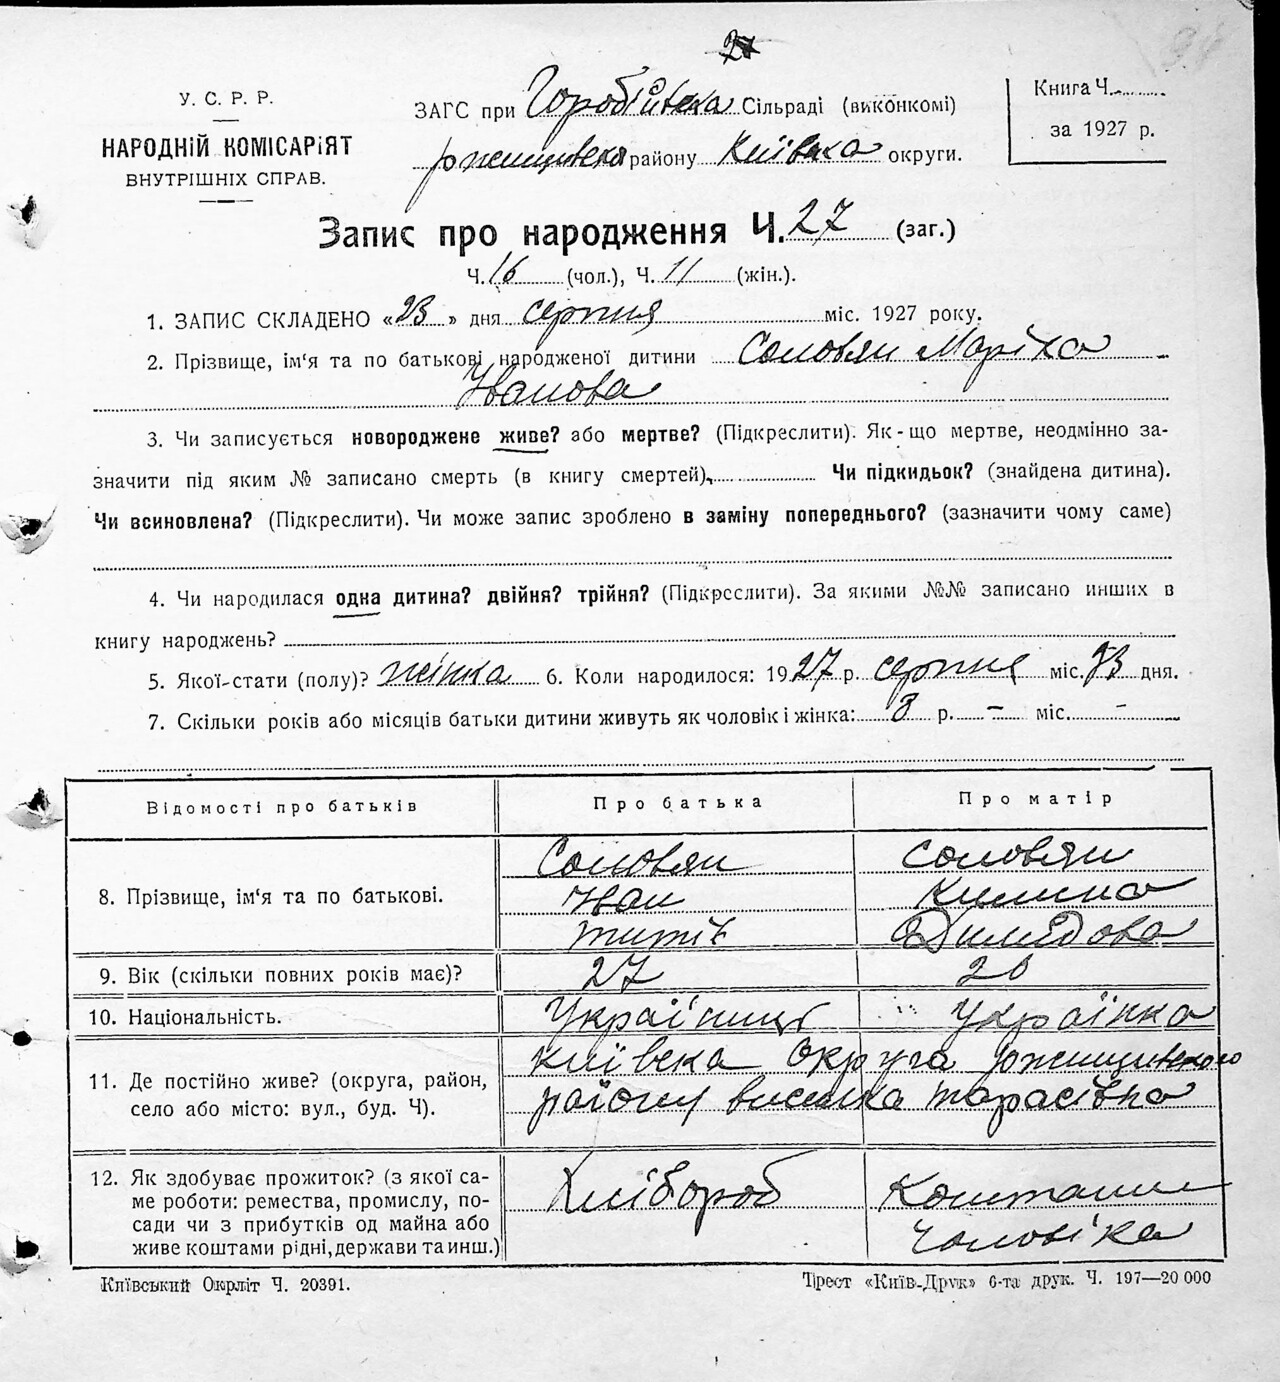 27
У. С. Р. Р.
НАРОДНІЙ КОМІСАРІЯТ
ВНУТРІШНІХ СПРАВ.
ЗАГС при Горобіївска Сільраді (виконкомі)
ржищивска району Київска округи.
Книга Ч.
за 1927 р.
Запис про народження Ч. 27 (заг.)
Ч. 16 (чол.), Ч. 11 (жін.).
1. ЗАПИС СКЛАДЕНО «23» дня серпня міс. 1927 року.
2. Прізвище, ім'я та по батькові народженої дитини Соловян Маріка
Іванова
3. Чи записується новороджене живе? або мертве? (Підкреслити). Як-що мертве, неодмінно за-
значити під яким № записано смерть (в книгу смертей), Чи підкидьок? (знайдена дитина).
Чи всиновлена? (Підкреслити). Чи може запис зроблено в заміну попереднього? (зазначити чому саме)
4. Чи народилася одна дитина? двійня? трійня? (Підкреслити). За якими №№ записано инших в
книгу народжень?
5. Якої-стати (полу)? жінка 6. Коли народилося: 1927 р. серпня міс. 23 дня.
7. Скільки років або місяців батьки дитини живуть як чоловік і жінка: 8 р. – міс. –
Відомості про батьків Про батька Про матір
8. Прізвище, ім'я та по батькові.
Соловян Соловян
Іван Килина
титів Димидова
9. Вік (скільки повних років має)? 27 26
10. Національність. Українщ Українка
11. Де постійно живе? (округа, район,
село або місто: вул., буд. Ч).
київска округа ржищивского
району висилка тарасівка
12. Як здобуває прожиток? (з якої са-
ме роботи: ремества, промислу, по-
сади чи з прибутків од майна або
живе коштами рідні, держави та инш.)
Хлібороб Коштами
Чоловіка
Київський Окрліт Ч. 20391.
Трест «Київ-Друк» 6-та друк. Ч. 197—20 000